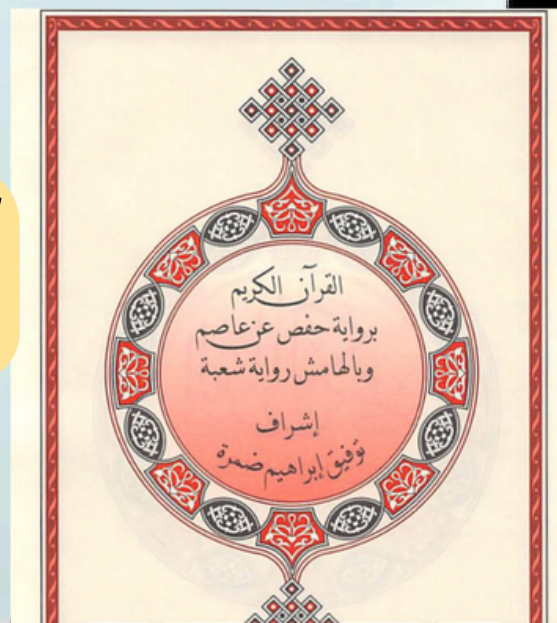 القرآن الكريم
برواية حفص عن عاصم
وبالهامش رواية شعبة
إشراف
توفيق إبراهيم ضمرة